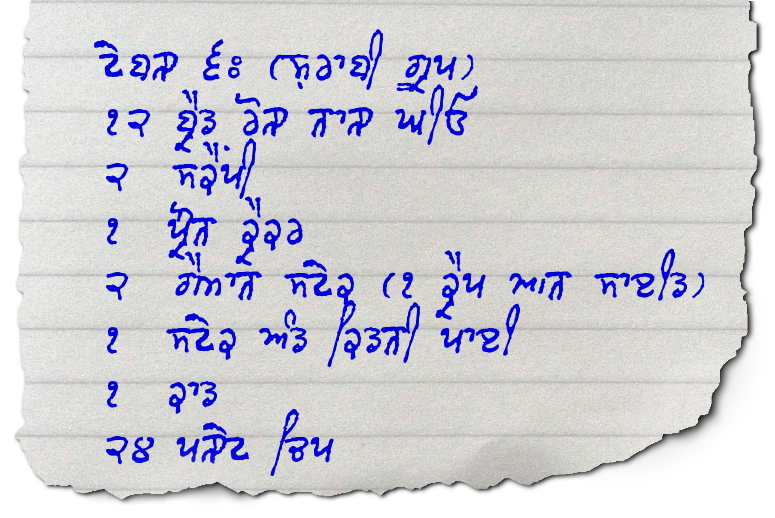 ਟੇਬਲ ੬ਃ (ਸ਼ਰਾਬੀ ਗ੍ਰੂਪ)
੧੨ ਬ੍ਰੈਡ ਰੋਲ ਨਾਲ ਘੀਓ
੨ ਸਕੈਂਪੀ
੧ ਪ੍ਰੌਨ ਕ੍ਰੈਕਰ
੨ ਗੈਮਾਨ ਸਟੇਕ (੧ ਕ੍ਰੈਪ ਆਨ ਸਾਈਡ)
੧ ਸਟੇਕ ਅੰਡ ਕਿਡਨੀ ਪਾਈ
੧ ਕਾਡ
੨੪ ਪਲੇਟ ਚਿਪ